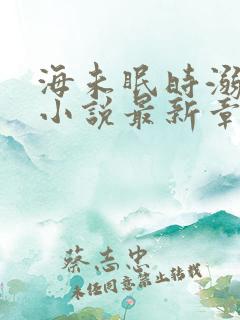 海未眠时溺
小说最新章
蔡志忠
未经同意禁止转载